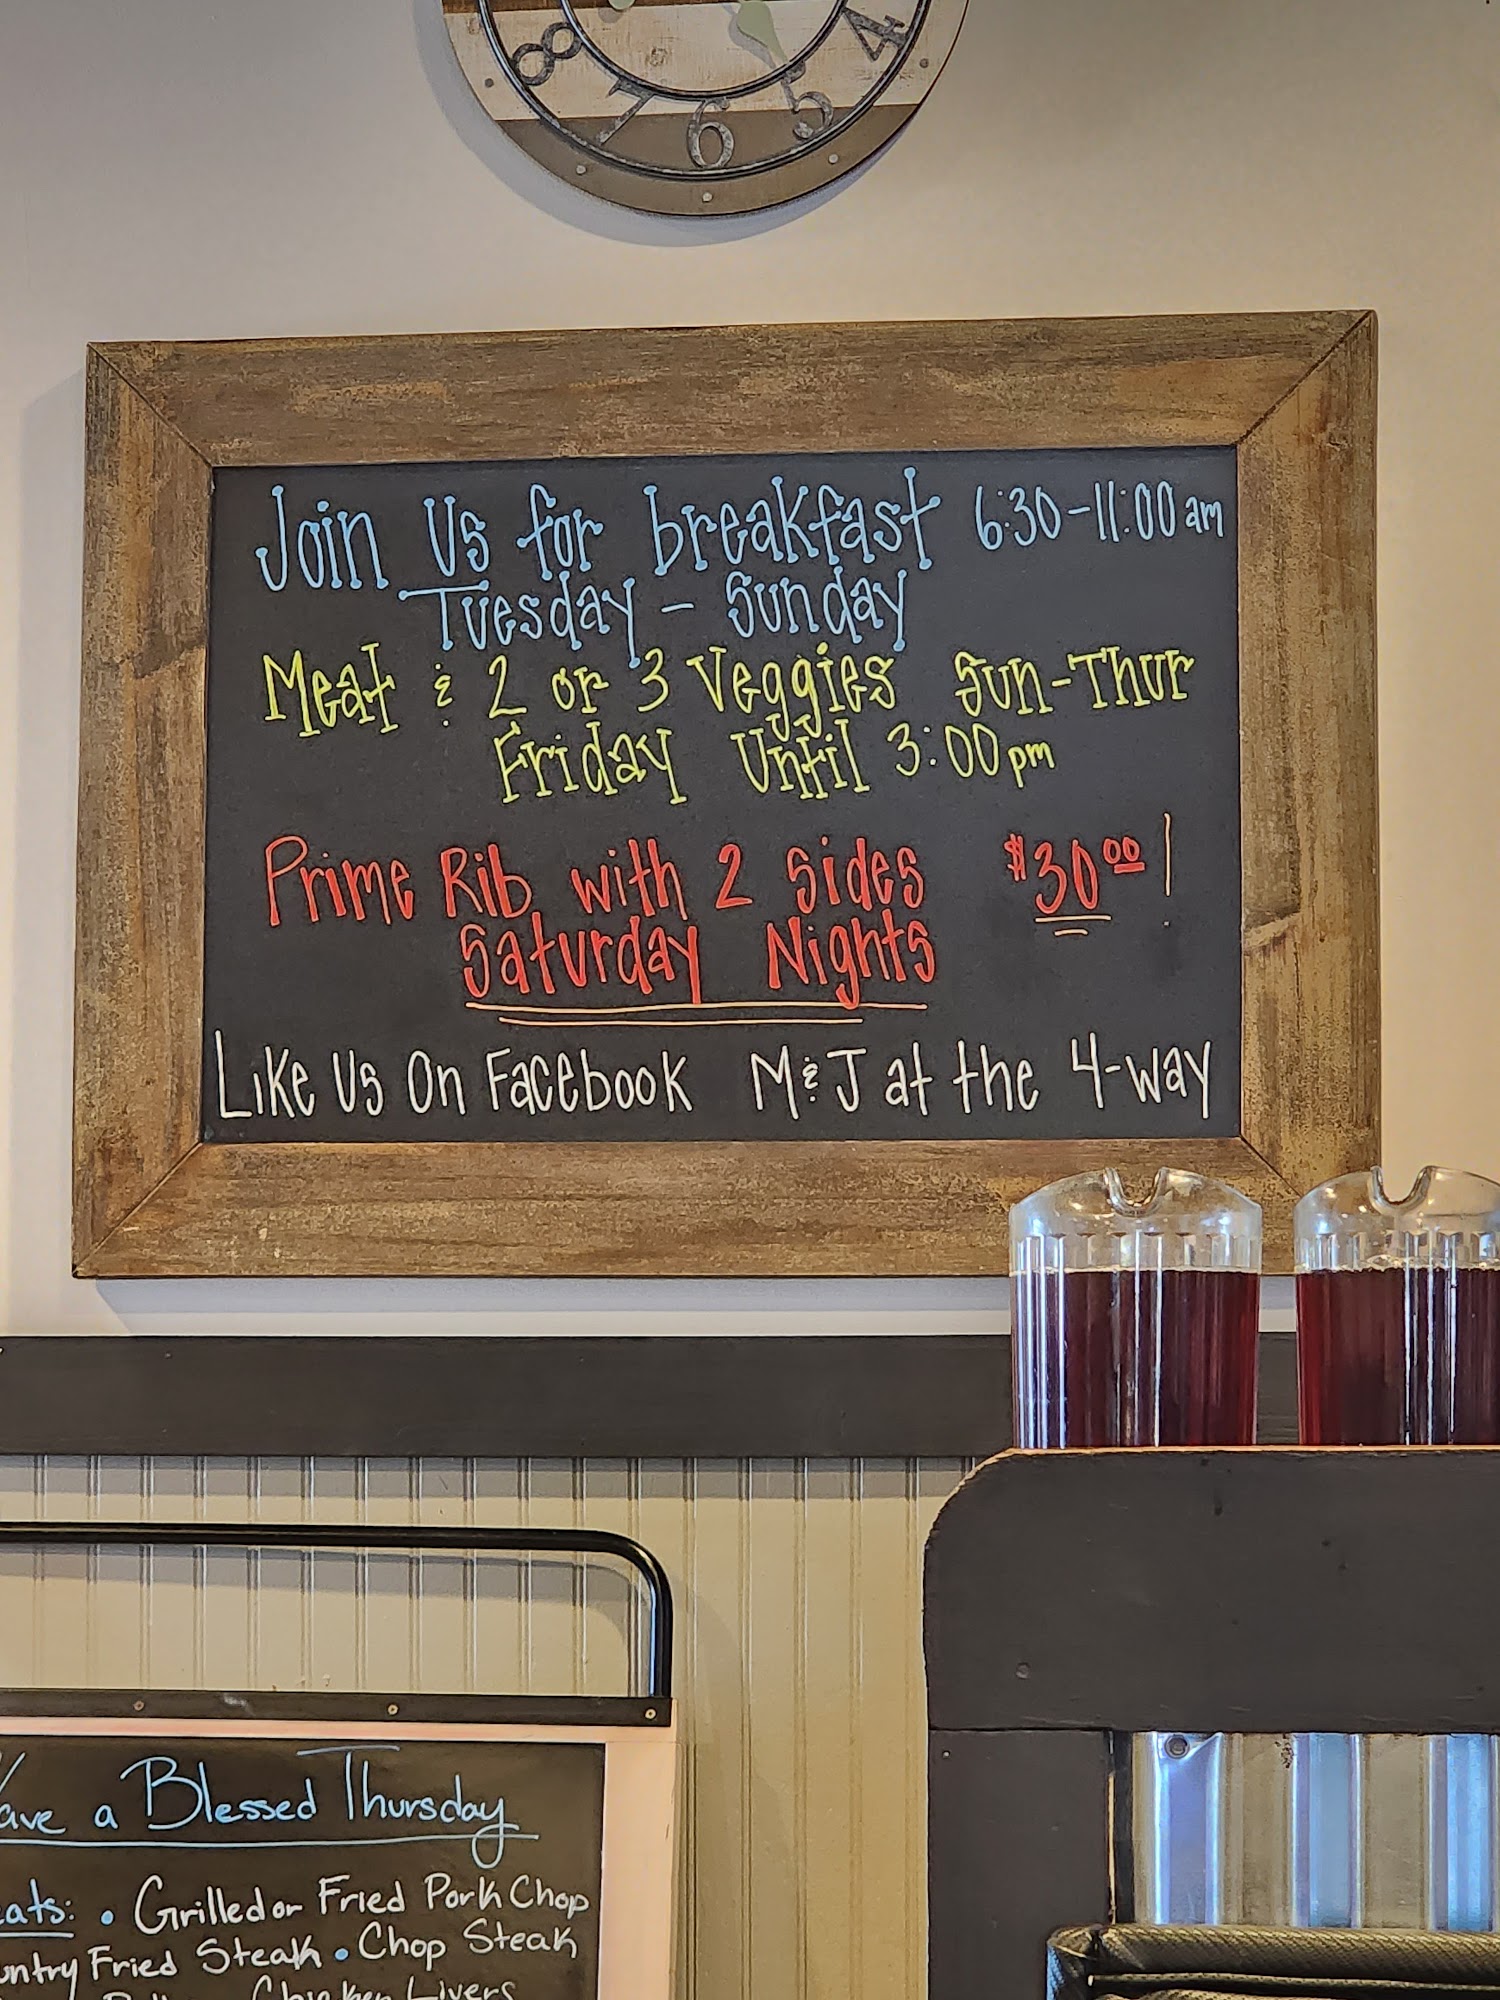 8 7 6 5 4
Join Us for breakfast 6:30-11:00 am
Tuesday - Sunday
Meat & 2 or 3 Veggies Sun-Thur
Friday Until 3:00 pm
Prime Rib with 2 Sides $30.00!
Saturday Nights
Like Us On Facebook M&J at the 4-way
a Blessed Thursday
• Grilled or Fried Pork Chop
Fried Steak • Chop Steak
Chicken Livers